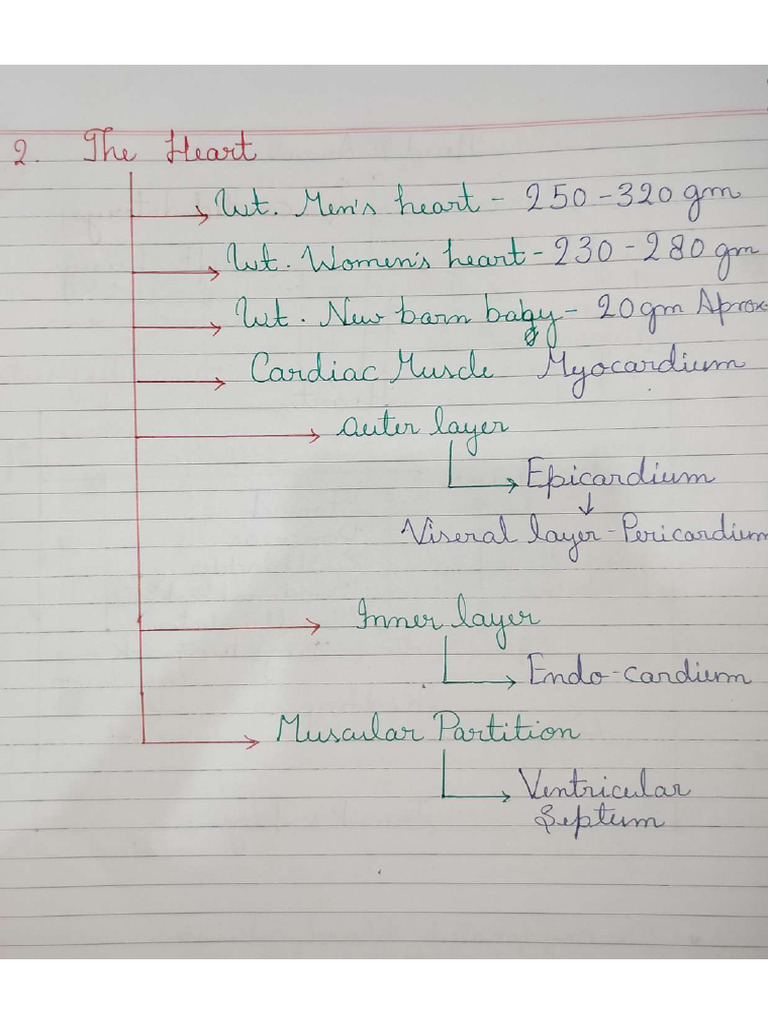 2. The Heart
Wt. Men's heart - 250-320 gm
Wt. Women's heart - 230 - 280 gm
Wt. New barn baby - 20gm Aprox.
Cardiac Muscle Myocardium
outer layer
Epicardium
Viseral layer - Pericardium
Inner layer
Endo-cardium
Muscular Partition
Ventricular
Septum